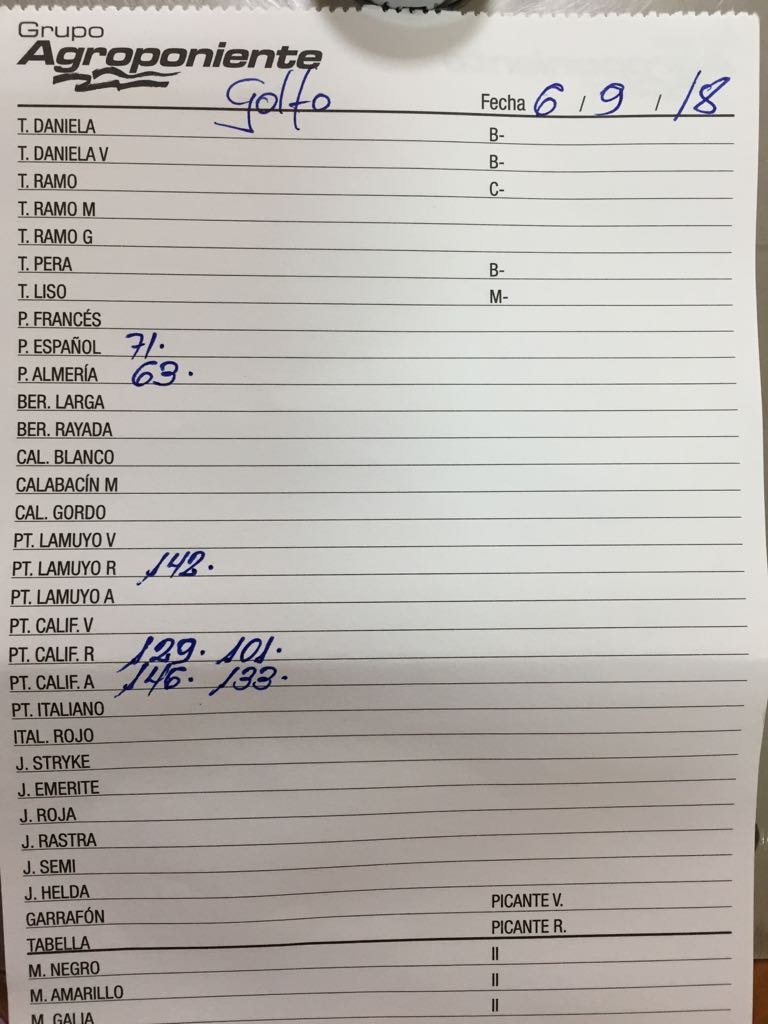 Grupo
Agroponiente
Golfo Fecha 6 / 9 / 18
T. DANIELA B-
T. DANIELA V B-
T. RAMO C-
T. RAMO M
T. RAMO G
T. PERA B-
T. LISO M-
P. FRANCÉS
P. ESPAÑOL 71.
P. ALMERÍA 63.
BER. LARGA
BER. RAYADA
CAL. BLANCO
CALABACÍN M
CAL. GORDO
PT. LAMUYO V
PT. LAMUYO R 142.
PT. LAMUYO A
PT. CALIF. V
PT. CALIF. R 129. 101.
PT. CALIF. A 146. 133.
PT. ITALIANO
ITAL. ROJO
J. STRYKE
J. EMERITE
J. ROJA
J. RASTRA
J. SEMI
J. HELDA
GARRAFÓN PICANTE V.
TABELLA PICANTE R.
M. NEGRO II
M. AMARILLO II
M. GALIA II